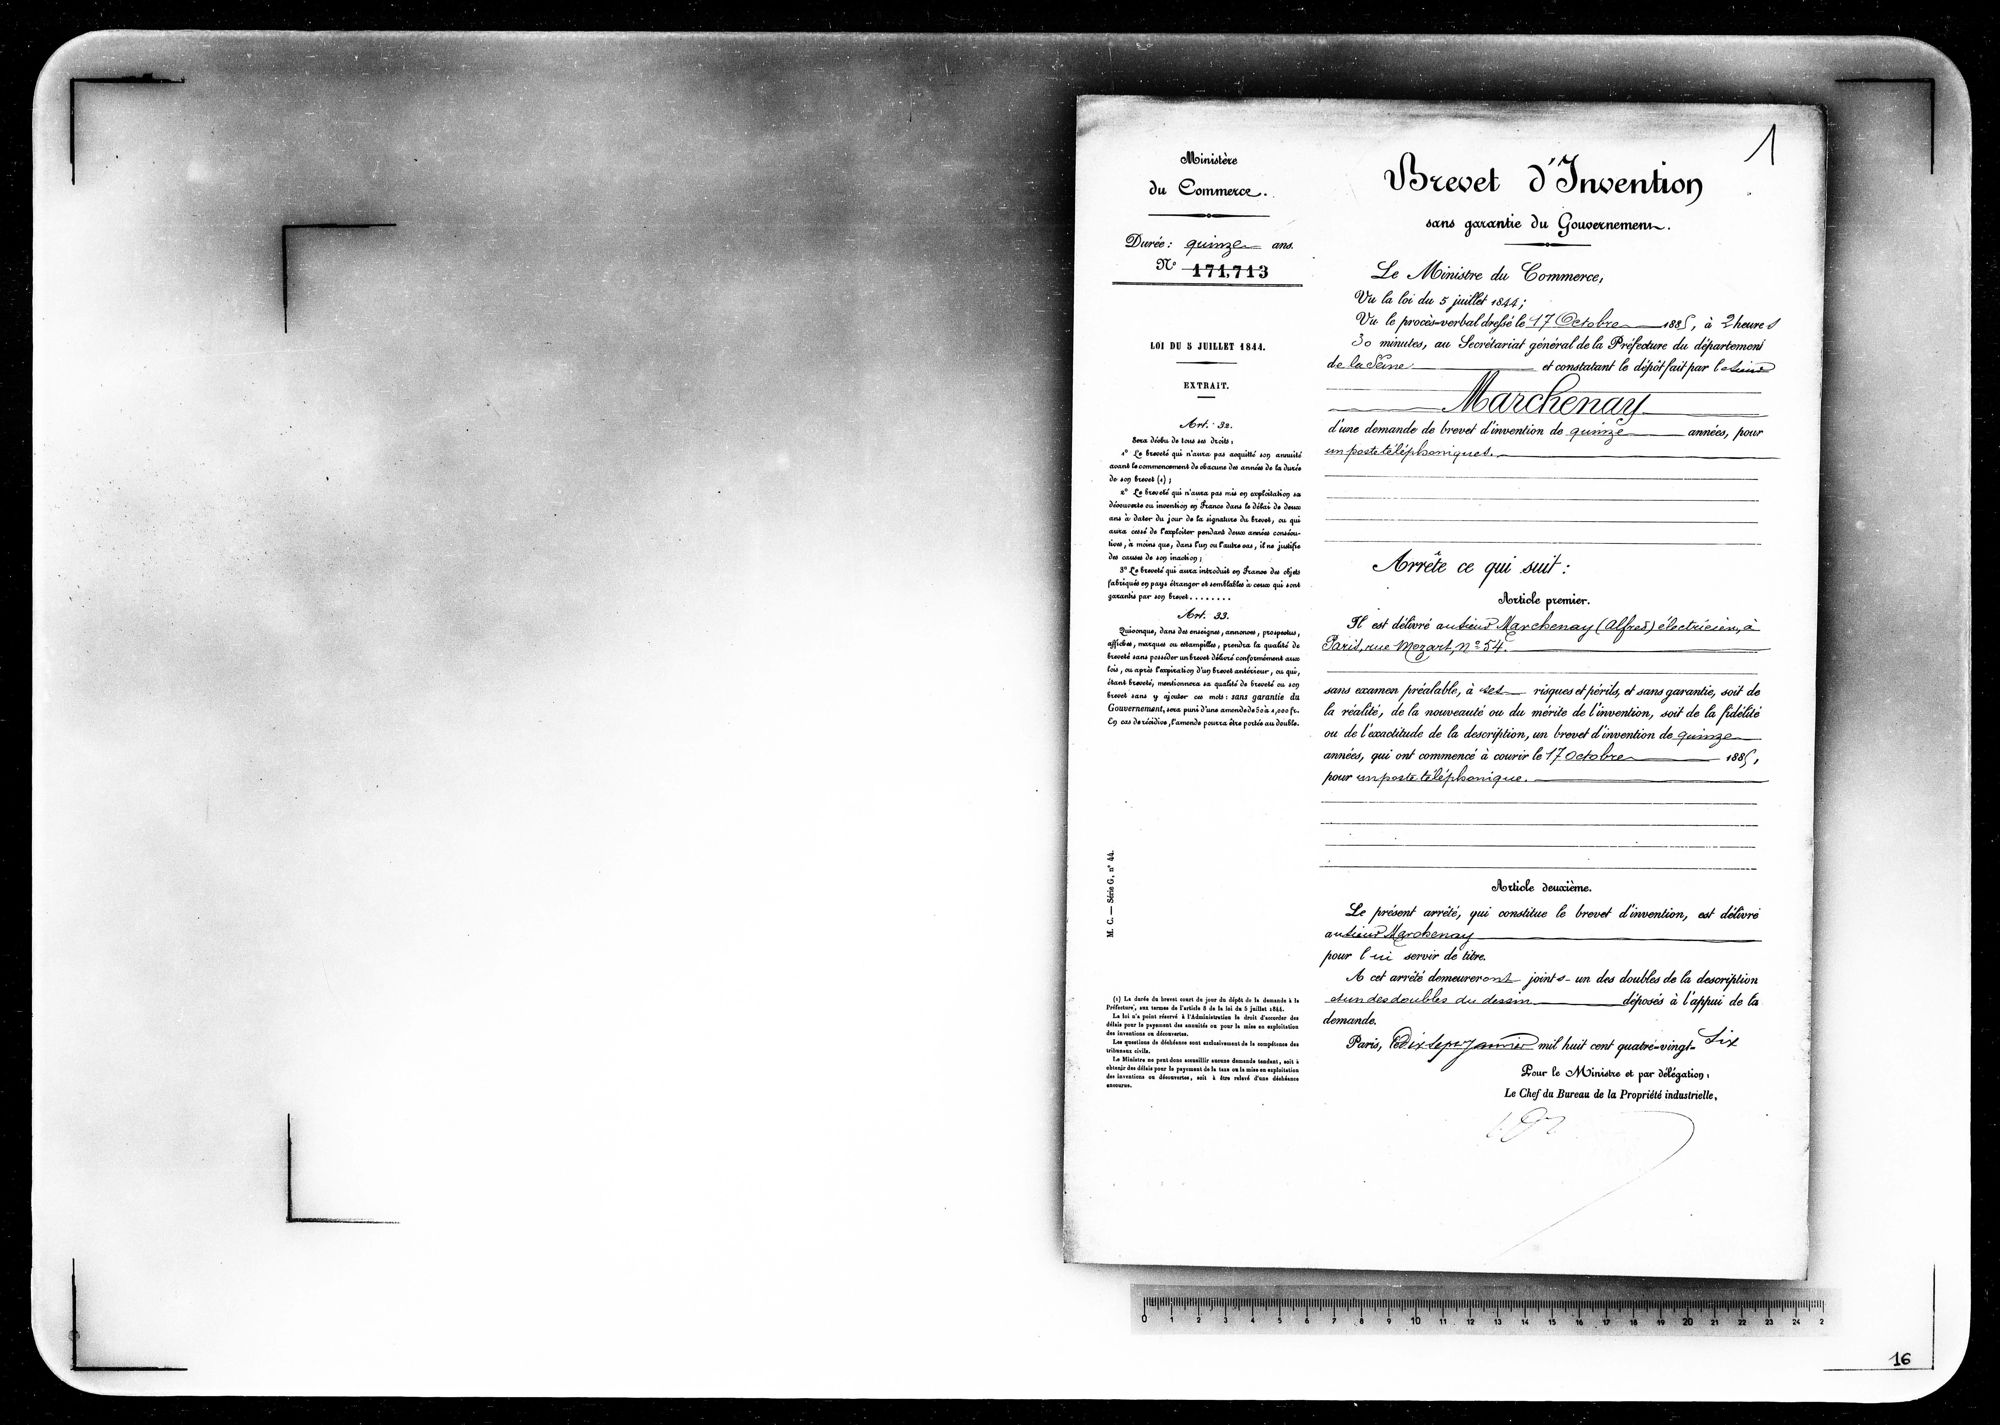 1
Ministère
du Commerce.
Durée: quinze ans.
N° 171,713
LOI DU 5 JUILLET 1844.
EXTRAIT.
Art. 32.
Sera déchu de tous ses droits:
1° Le breveté qui n'aura pas acquitté son annuité
avant le commencement de chacune des années de la durée
de son brevet (1);
2° Le breveté qui n'aura pas mis en exploitation sa
découverte ou invention en France dans le délai de deux
ans à dater du jour de la signature du brevet, ou qui
aura cessé de l'exploiter pendant deux années consécu-
tives, à moins que, dans l'un ou l'autre cas, il ne justifie
des causes de son inaction;
3° Le breveté qui aura introduit en France des objets
fabriqués en pays étranger et semblables à ceux qui sont
garantis par son brevet........
Art. 33.
Quiconque, dans des enseignes, annonces, prospectus,
affiches, marques ou estampilles, prendra la qualité de
breveté sans posséder un brevet délivré conformément aux
lois, ou après l'expiration d'un brevet antérieur, ou qui,
étant breveté, mentionnera sa qualité de breveté ou son
brevet sans y ajouter ces mots: sans garantie du
Gouvernement, sera puni d'une amende de 50 à 1,000 fr.
En cas de récidive, l'amende pourra être portée au double.
M. C. — Série G, n° 44.
(1) La durée du brevet court du jour du dépôt de la demande à la
Préfecture, aux termes de l'article 8 de la loi du 5 juillet 1844.
La loi n'a point réservé à l'Administration le droit d'accorder des
délais pour le payement des annuités ou pour la mise en exploitation
des inventions ou découvertes.
Les questions de déchéance sont exclusivement de la compétence des
tribunaux civils.
Le Ministre ne peut donc accueillir aucune demande tendant, soit à
obtenir des délais pour le payement de la taxe ou la mise en exploitation
des inventions ou découvertes, soit à être relevé d'une déchéance
encourue.
Brevet d'Invention
sans garantie du Gouvernement.
Le Ministre du Commerce,
Vu la loi du 5 juillet 1844;
Vu le procès-verbal dressé le 17 Octobre 1885, à 2 heures
30 minutes, au Secrétariat général de la Préfecture du département
de la Seine et constatant le dépôt fait par le sieur
Marchenay
d'une demande de brevet d'invention de quinze années, pour
un poste téléphoniques.
Arrête ce qui suit:
Article premier.
Il est délivré au sieur Marchenay (Alfred) électricien, à
Paris, rue Mozart, n° 54.
sans examen préalable, à ses risques et périls, et sans garantie, soit de
la réalité, de la nouveauté ou du mérite de l'invention, soit de la fidélité
ou de l'exactitude de la description, un brevet d'invention de quinze
années, qui ont commencé à courir le 17 octobre 1885,
pour un poste téléphonique.
Article deuxième.
Le présent arrêté, qui constitue le brevet d'invention, est délivré
au sieur Marchenay
pour lui servir de titre.
A cet arrêté demeureront joints un des doubles de la description
et un des doubles du dessin déposés à l'appui de la
demande.
Paris, le dix sept Janvier mil huit cent quatre-vingt- Six
Pour le Ministre et par délégation,
Le Chef du Bureau de la Propriété industrielle,
0 1 2 3 4 5 6 7 8 9 10 11 12 13 14 15 16 17 18 19 20 21 22 23 24 2
16